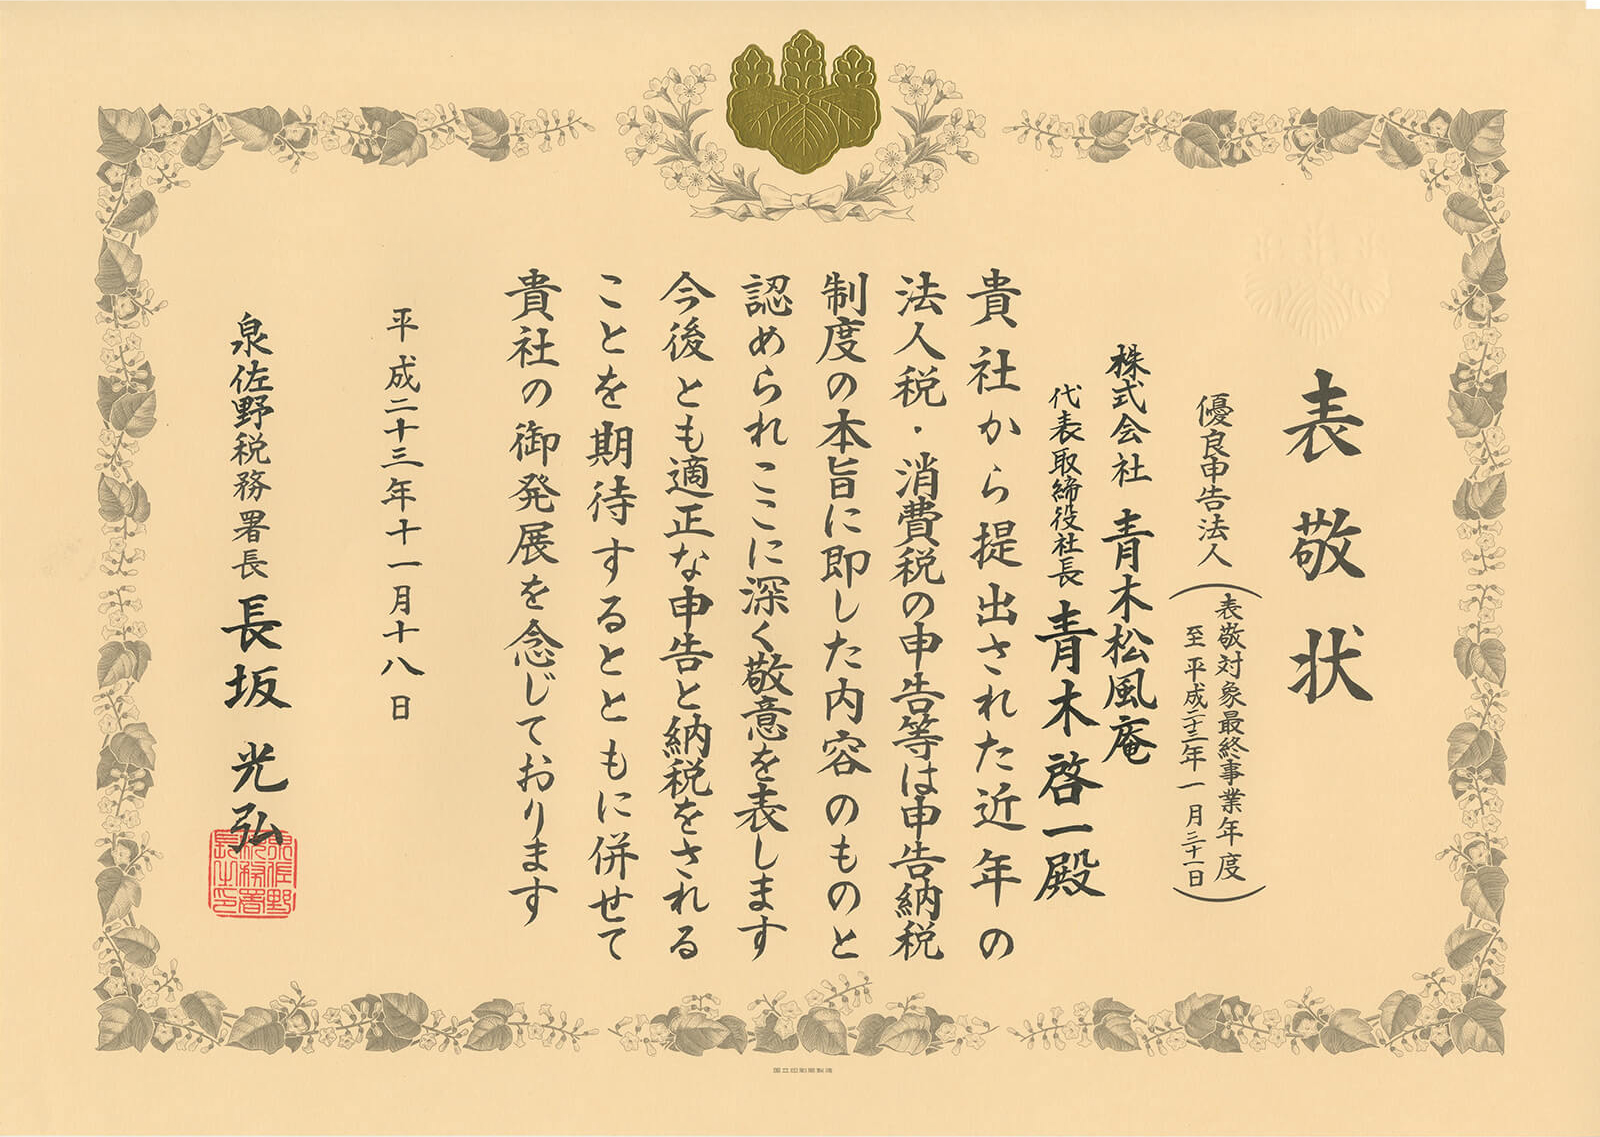 表敬状
優良申告法人
(表敬対象最終事業年度
至平成二十三年一月三十一日)
株式会社 青木松風庵
代表取締役社長 青木啓一殿
貴社から提出された近年の
法人税・消費税の申告等は申告納税
制度の本旨に即した内容のものと
認められここに深く敬意を表します
今後とも適正な申告と納税をされる
ことを期待するとともに併せて
貴社の御発展を念じております
平成二十三年十一月十八日
泉佐野税務署長 長坂光弘
泉佐野税務署長之印
国立印刷局製造